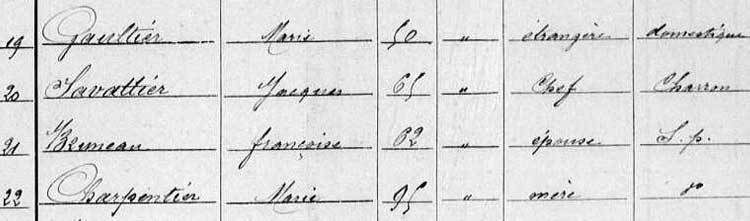 19 Gaultier Marie 50 " étrangère domestique
20 Savattier Jacques 65 " Chef Charron
21 Bruneau françoise 62 " épouse S. p.
22 Charpentier Marie 95 " mère dº